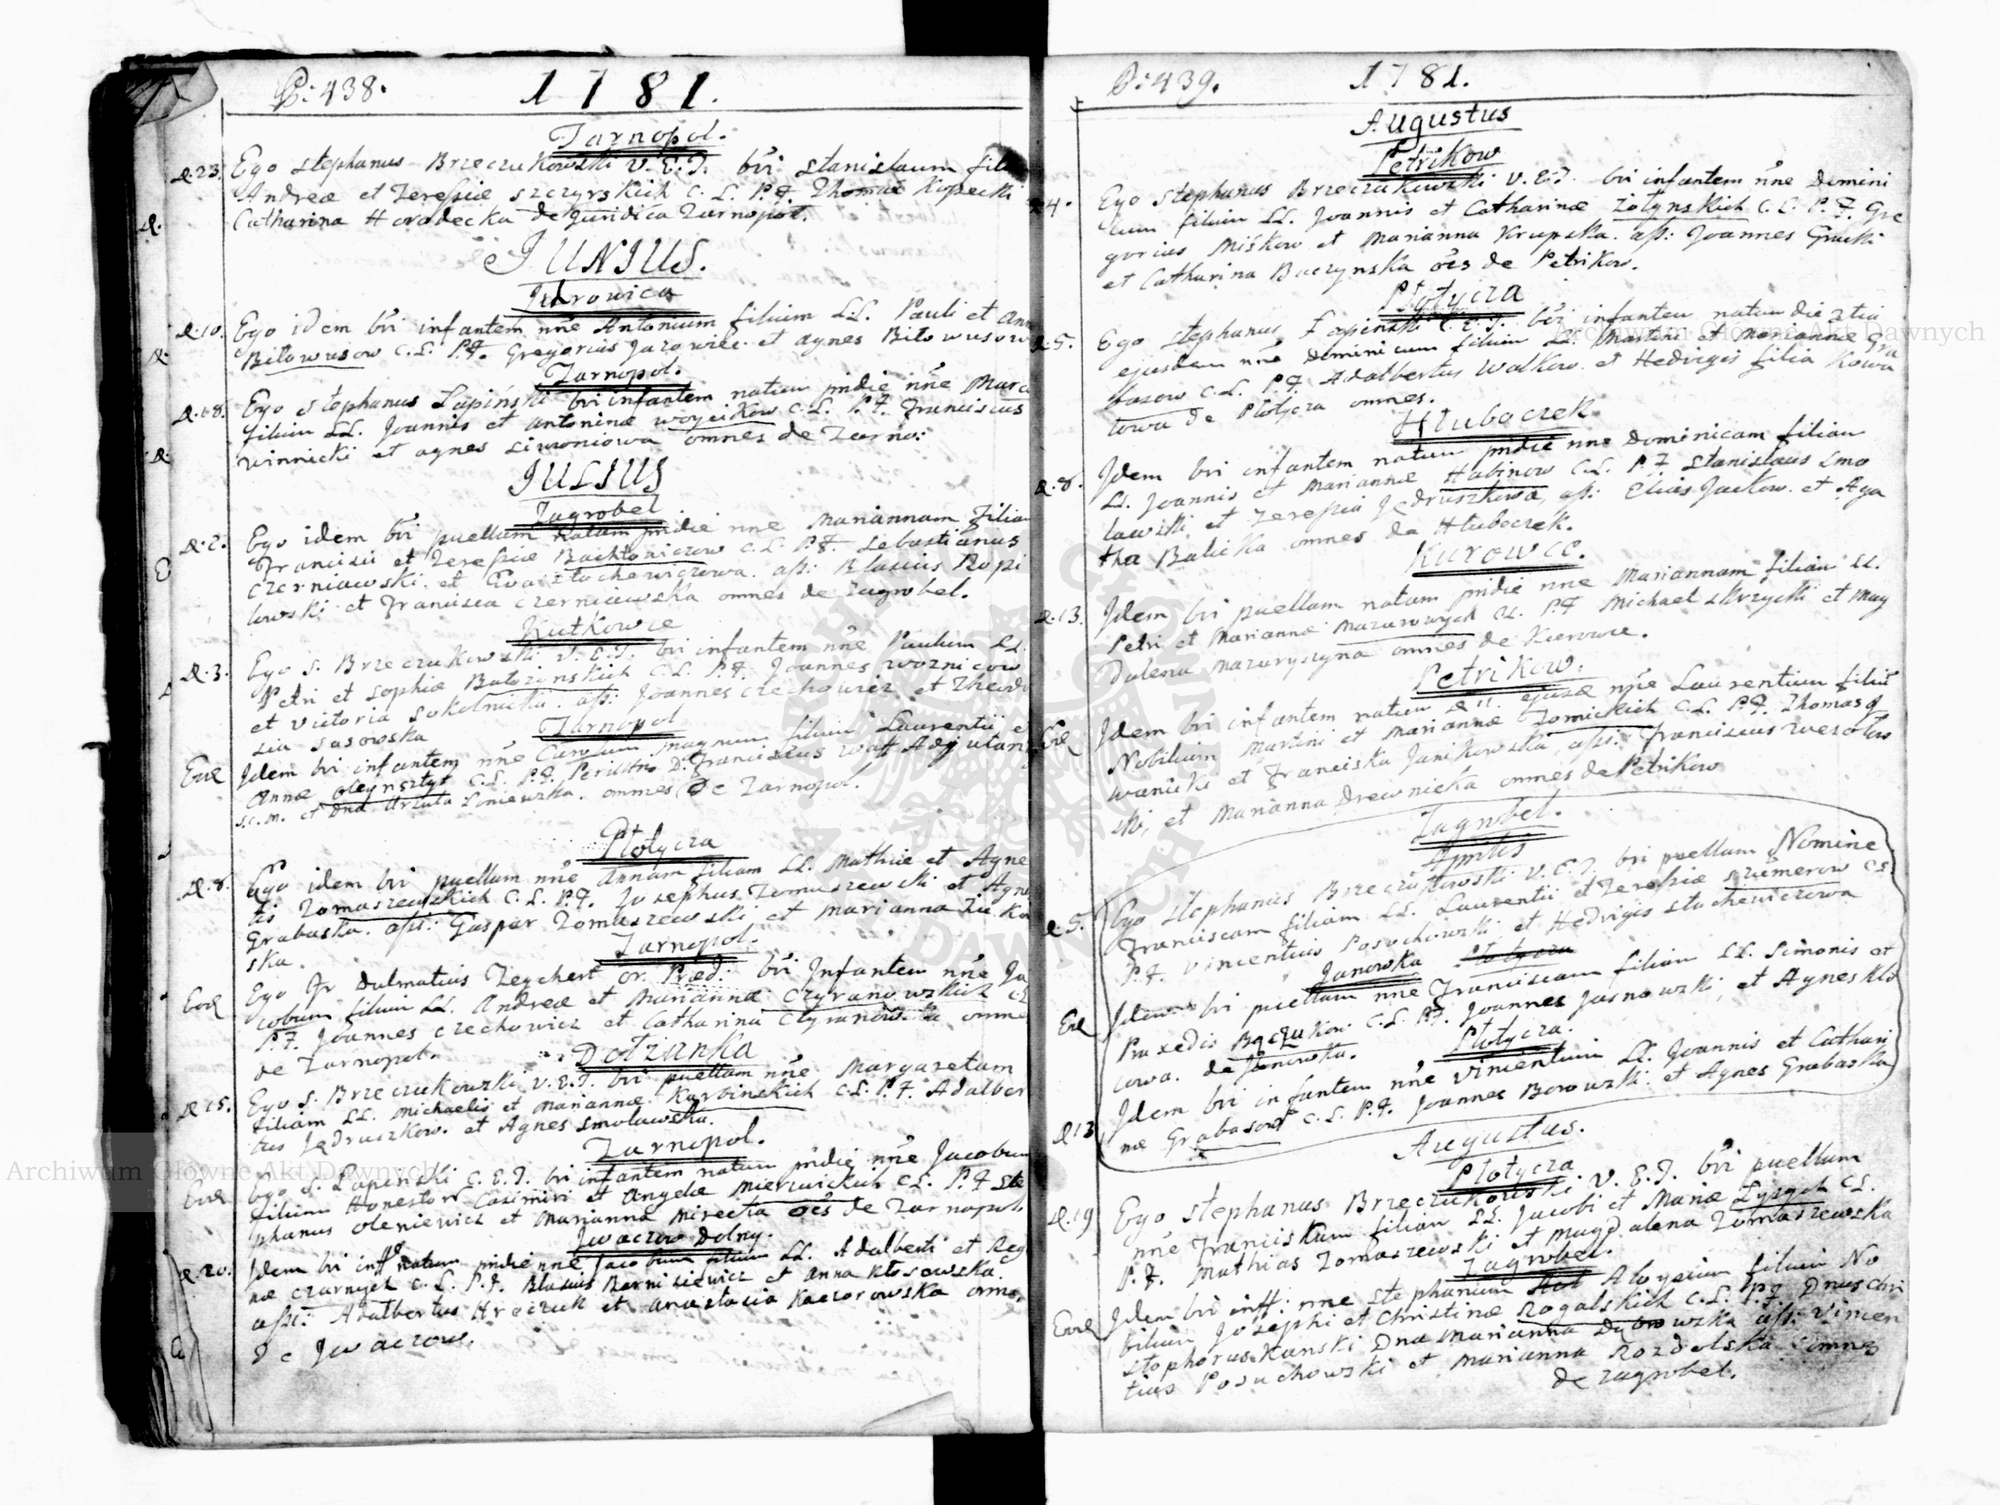 P: 438.
1781.
Tarnopol.
d. 23. Ego Stephanus Brzeczukowski V. E. T. bvi Stanislaum fili
Andreæ et Teressiæ Szczyrskich C. L. P. F. Thomas Kopecki
Catharina Horodecka de Juridica Tarnopol.
JUNIUS.
d. 10. Ego idem bvi infantem nñe Antonium filium LL. Pauli et Ann
Bitowusow C. L. P.F. Gregorius Jazowiec et Agnes Bitowusow
Tarnopol.
Ego Stephanus Łapiński bvi infantem natum pridie nñe Marc
filium LL. Joannis et Antoninæ Woycikow C. L. P. F. Franciscus
Winnicki et Agnes Simoniowa omnes de Tarno:
JULIUS
Zagrobel
d. 2. Ego idem bvi puellam natam pridie nñe Mariannam filia
Francisci et Teressiæ C. L. P. F. Sebastianus
Czerniawski et Eva Stocheniczowa. ass: Blasius Ropi
lowski et Francisca Czerniawska omnes de Zagrobel.
Kutkowce
d. 3. Ego S. Brzeczukowski V. E. T. bvi infantem nñe Paulum LL.
Petri et Sophiæ C. L. P. F. Joannes Woznicow
et Victoria Sokolnicka. ass: Joannes Czechowicz et Theodo
sia Sasowska
Tarnopol
Eod Idem bvi infantem nñe Carolum Magnum filium Laurentii e
Annæ Oleynsztyt C. L. P. F. Perillus D: Franciscus Wass Adjutan
S.C.M. et Dna Urzula Loniewzka. omnes de Tarnopol.
Płotycza
d. 8. Ego idem bvi puellam nñe Annam filiam LL. Mathiæ et Agne
tis Tomaszewskich C. L. P. F. Josephus Tomaszewski et Agne
Grabaska. ass: Gaspar Tomaszewski et Marianna
ska.
Tarnopol.
Eod Ego Fr Dalmatius Teychert Or. Præd: bvi Infantem nñe Ja
cobum filium LL. Andreæ et Mariannæ Czyranowskich C L
P. F. Joannes Czechowicz et Catharina Czyranowska omne
de Tarnopol.
Dołżanka
d. 15. Ego S. Brzeczukowzki V. E. T. bvi puellam nñe Margaretam
filiam LL. Michaelis et Mariannæ Karbinskich C. L. P. F. Adalber
tus Jędruszkow. et Agnes Smolawska.
Tarnopol.
Eod Ego S. Łapinski C. E. T. bvi infantem natum pridie nñe Jacobum
filium Honestor Casimiri et Angelæ Mierzwickich C L. P. F Ste
phanus Oleniewicz et Marianna Mirecka oẽs de Tarnopol.
Jwaczow Dolny.
d. 20. Idem bvi infte natum pridie nne Jacobum filium LL. Adalberti et Reg
næ Czarnych C. L. P. F. Blasius Bernisiewicz et Anna Kłosowska.
ass: Adalbertus Hreczuk et Anastasia Kaczorowska omne
de Jwaczow.
P: 439.
1781.
Augustus
Petrikow
d 4. Ego Stephanus Brzeczukowzki V. E. T. bvi infantem nñe Domini
cum filium LL. Joannis et Catharinæ Zołynskich C. L. P. F. Gre
gorius Miśkow et Marianna Krupska. ass: Joannes Gracki
et Catharina Buczynska oẽs de Petrikow.
Płotycza
d. 5. Ego Stephanus Łapinski C. E. T. bvi infantem natum die 2tia
ejusdem nñe Dominicum filium LL. Martini et Mariannæ Gra
basow C. L. P. F. Adalbertus Walkow. et Hedvigis filia Kowa
lowa de Płotycza omnes.
Hłuboczek
d. 8. Idem bvi infantem natam pridie nne Dominicam filiam
LL. Joannis et Mariannæ Habinow C. L. P. F. Stanislaus Smo
lawski et Teressia Jędruszkowa, ass: Elias Jackow. et Aga
tha Balicka omnes de Hłuboczek.
Kurowce.
d. 13. Idem bvi puellam natam pridie nne Mariannam filiam LL.
Petri et Mariannæ Mazurowych CL. P. F Michael Skrzycki et Mag
dalena Mazuryszyna omnes de Kurowce.
Petrikow.
Eod Idem bvi infantem natum d 11. ejusd nñe Laurentium filiũ
Nobilium Martini et Mariannæ Tomickich C. L. P. F. Thomas
wanicki et Franciska Janikowska, ass: Franciscus Wesołow
ski, et Marianna Drewnicka omnes de Petrikow
Zagrobel.
Aprilis
d. 5. Ego Stephanus Brzeczukowski V. E. T. bvi puellam Nomine
Franciscam filiam LL. Laurentii et Teressiæ Szumerow CL
P. F. Vincentius Posuchowski et Hedvigis Stocheniczowa
Janowka
Eod Idem bvi puellam nñe Franciscam filiam LL. Simonis et
Praxedis Baczukow C. L. P. F. Joannes Jasnowzki, et Agnes Kli
cowa. de Janowka.
Płotycza.
d 13 Idem bvi infantem nñe Vincentium LL. Joannis et Cathari
næ Grabasow C. L. P. F. Joannes Borowzki et Agnes Grabaska
Augustus.
Płotycza
d. 19 Ego Stephanus Brzeczukowski V. E. T. bvi puellam
nñe Franciskam filiam LL. Jacobi et Mariæ Łysych CL.
P. F. Mathias Tomaszewski et Magdalena Tomaszewska
Zagrobel.
Eod Idem bvi infft: nne Stephanum Aloysium filium No
bilium Josephi et Christinæ Rogalskich C. L. P. F. Dnus Chri
stophorus Kanski Dna Marianna Dąbrowska ass. Vincen
tius Posuchowski et Marianna Rozdolska omnes
de Zagrobel.
Archiwum Główne Akt Dawnych
Archiwum Główne Akt Dawnych